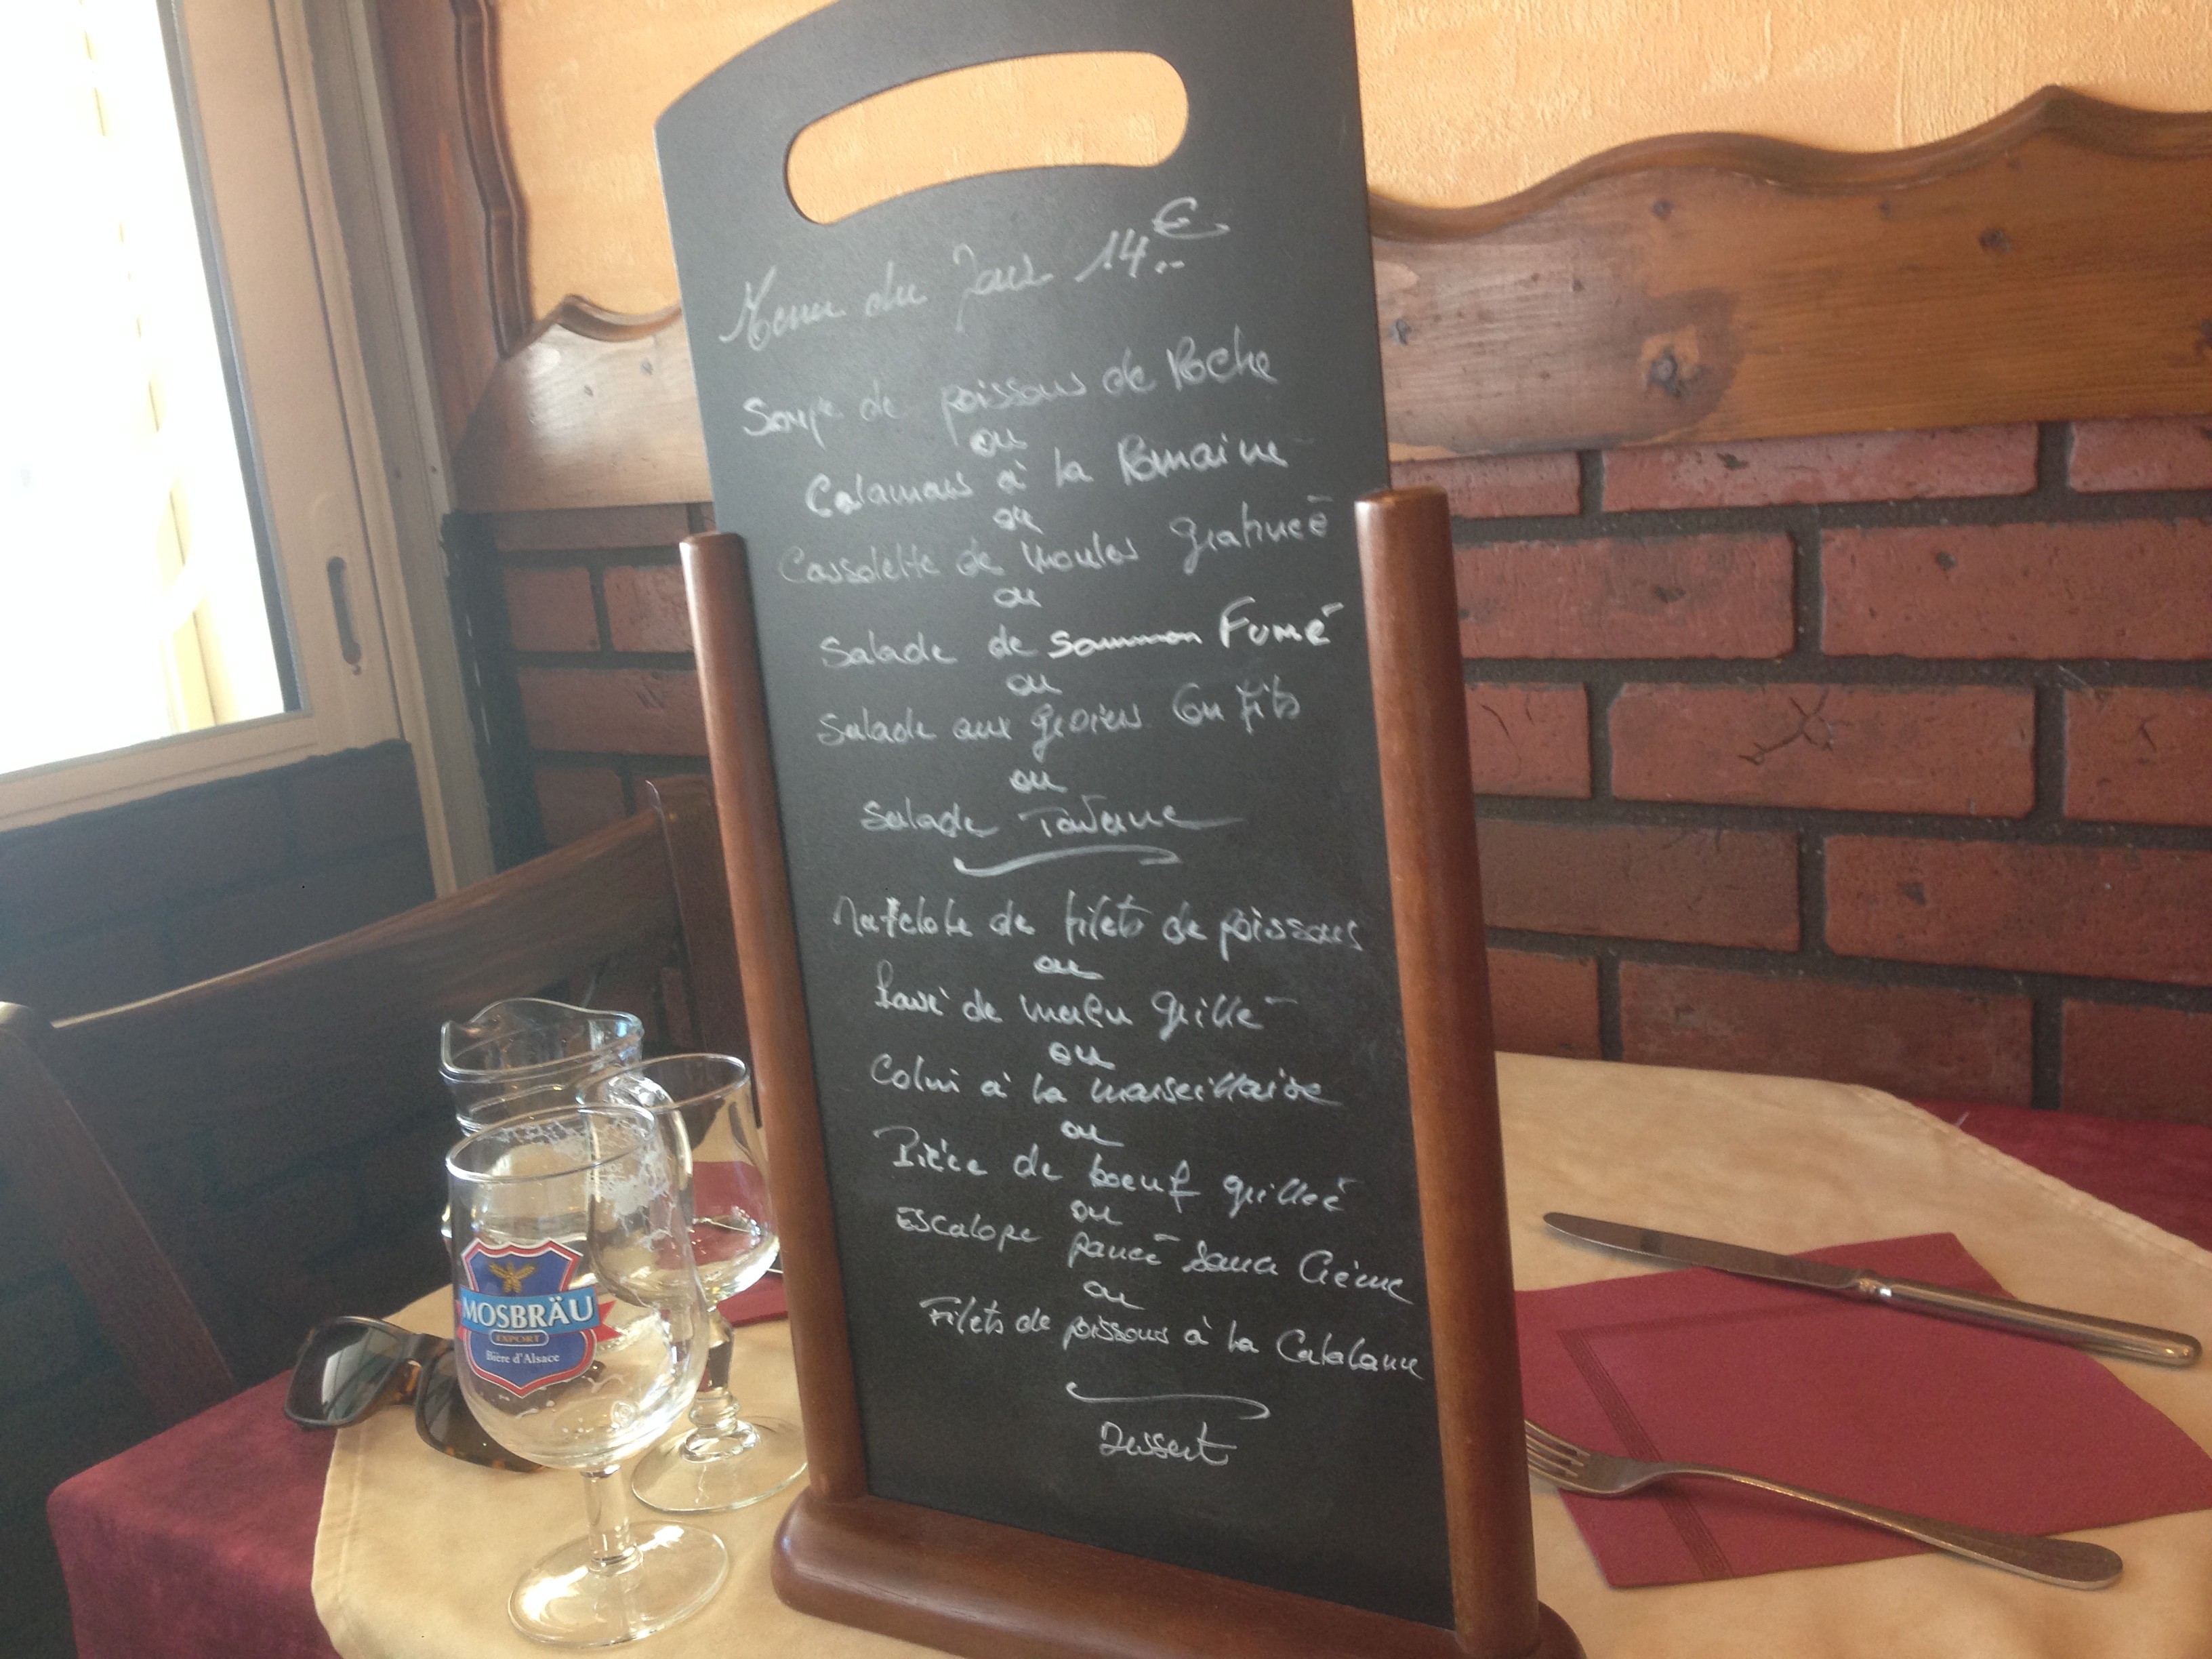 Menu du Jour 14€
Soupe de poissons de Roche
ou
Calamars à la Romaine
ou
Cassolette de moules Gratineé
ou
Salade de Saummon Fumé
ou
Salade aux gesiers Confits
ou
Salade Taverne
Matelote de filets de poissons
ou
Pavé de merlu Grillé
ou
Colin à la marseillaise
ou
Pièce de boeuf grilleé
ou
Escalope paneé Sauce Crème
ou
Filets de poissons à la Catalane
Dessert
MOSBRÄU
EXPORT
Bière d'Alsace